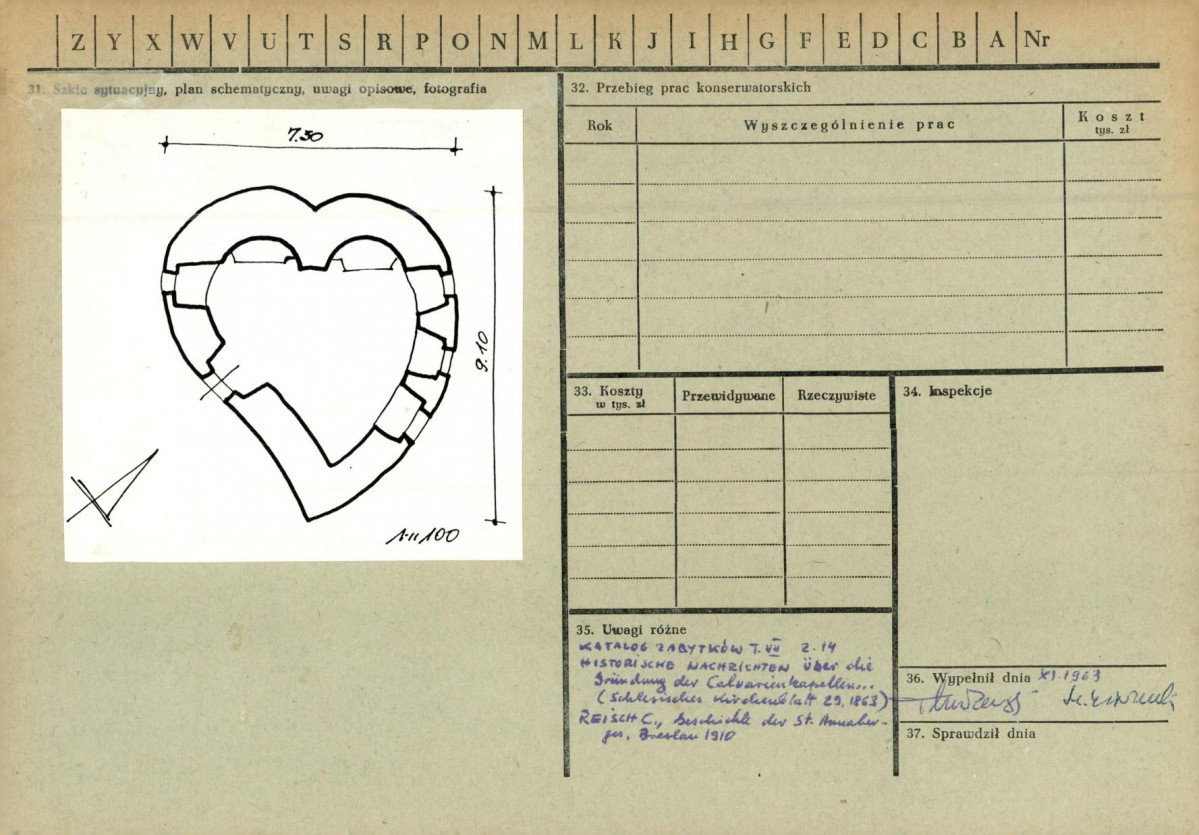 Z Y X W V U T S R P O N M L K J I H G F E D C B A Nr
31. Szkic sytuacyjny, plan schematyczny, uwagi opisowe, fotografia
7.30
9.10
1:100
32. Przebieg prac konserwatorskich
Rok
Wyszczególnienie prac
Koszt
tys. zł
33. Koszty
w tys. zł
Przewidywane
Rzeczywiste
34. Inspekcje
35. Uwagi różne
KATALOG ZABYTKÓW T. VII Z. 14
HISTORISCHE NACHRICHTEN über die
Gründung der Calvarienkapellen...
(Schlesisches Kirchenblatt 29, 1863)
REISCH C., Geschichte der St. Annaber-
ges, Breslau 1910
36. Wypełnił dnia XI.1963
37. Sprawdził dnia